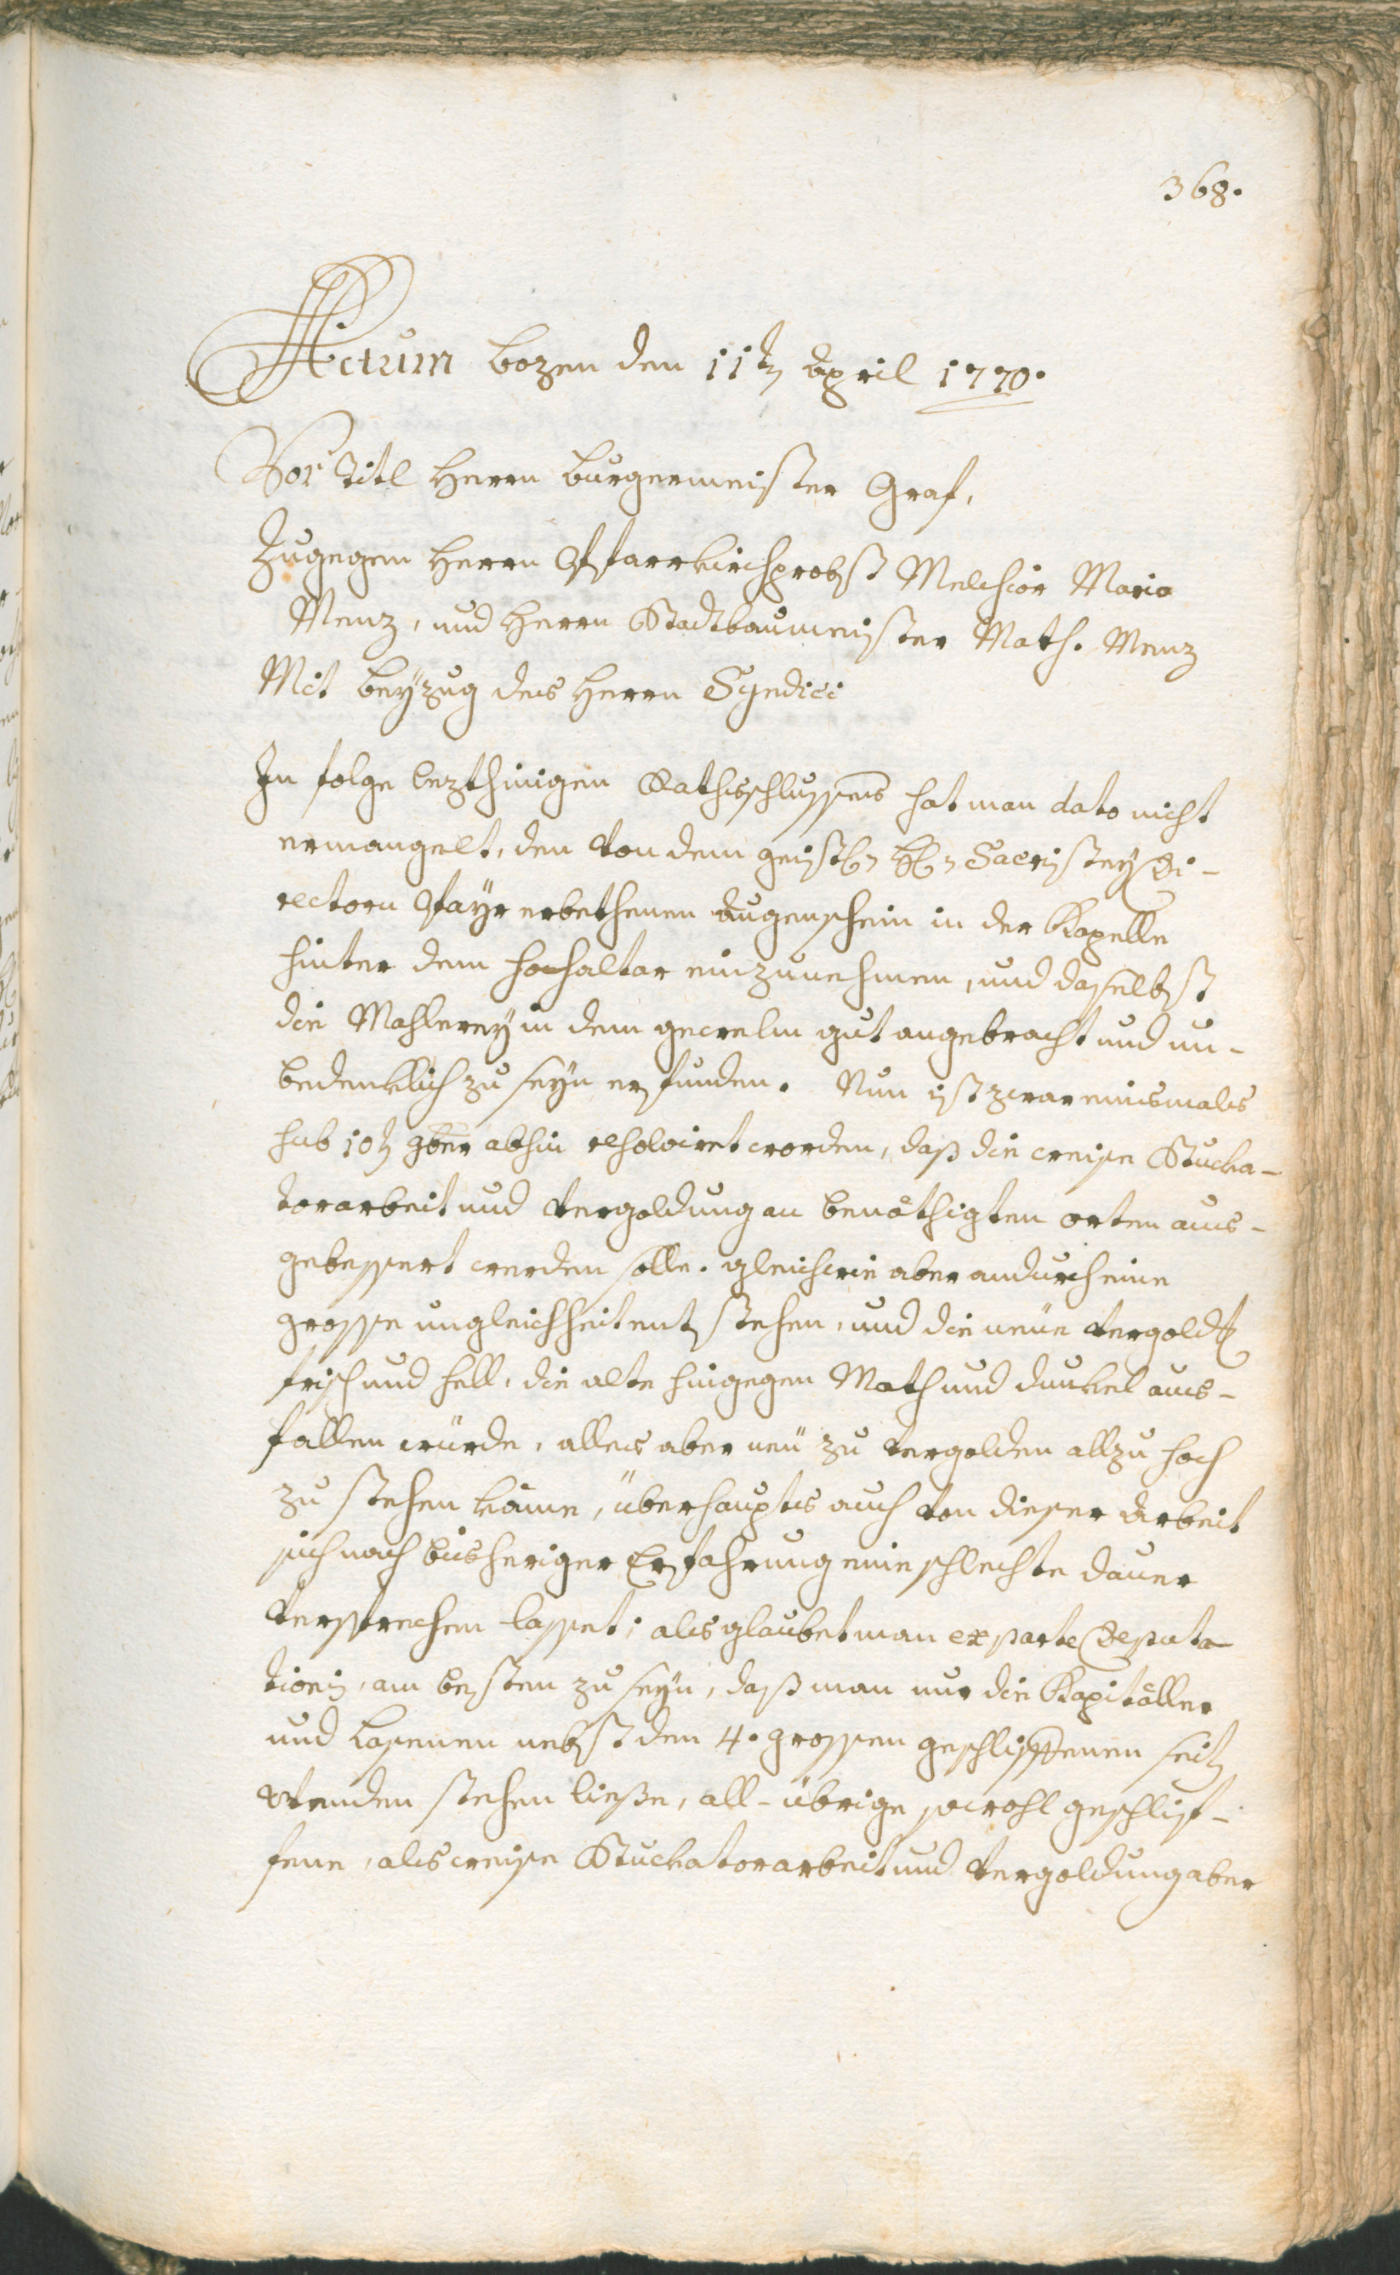 368.
Actum bozen den 11t: April 1770.
Vor Titl Herrn burgermeister Graf,
Zugegen Herrn Pfarrkirchprobst Melchior Maria
Menz, und Herrn Stadtbaumeister Math. Menz
Mit beyzug des Herrn Syndici
In folge lezthinigen Rathsschlusses hat man dato nicht
ermanglet, den von dem geistl: H: Sacristey Di-
rectorn Payr erbethenen augenschein in der Kapelle
hinter dem hochaltar einzunehmen, und daselbst
die Mahlerey in dem gewelm gut angebracht und un-
bedenklich zu seyn erfunden. Nun ist zwar einsmals
sub 10t: 9ber abhin resolviret worden, daß die weise Stucka-
torarbeit und vergoldung an benöthigten orten aus-
gebessert werden solle. gleichwie aber andurch eine
grosse ungleichheit entstehen, und die neue vergold:
frisch und hell, die alte hingegen Math und dunkel aus-
fallen würde, alles aber neü zu vergolden allzu hoch
zu stehen käme, überhaupts auch von dieser Arbeit
sich nach bisheriger Erfahrung eine schlechte dauer
versprechen lasset; als glaubet man ex parte Deputa-
tionis, am besten zu seyn, daß man nur die Kapitäller
und Lasenen nebst den 4. grossen geschliffenen seit
wenden stehen liesse, all-übrige sowohl geschlif-
fene, als weise Stuckatorarbeit und vergoldung aber